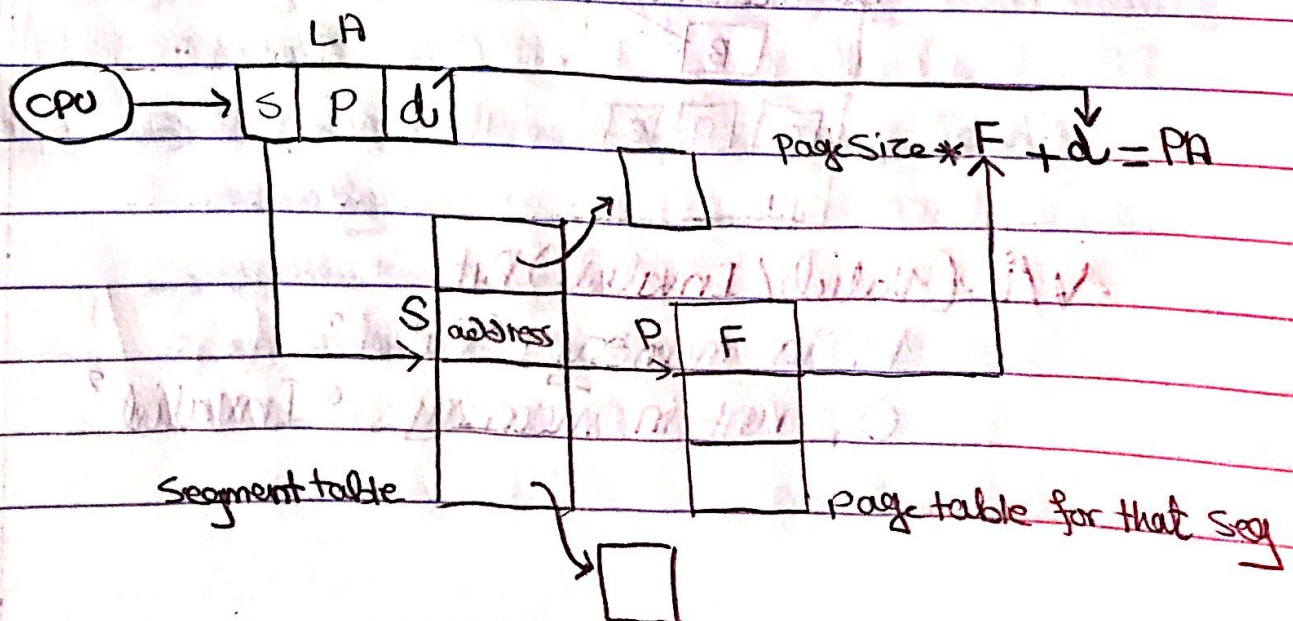 LA
CPU
S P d
PageSize * F + d = PA
S address P F
Segment table
page table for that seg